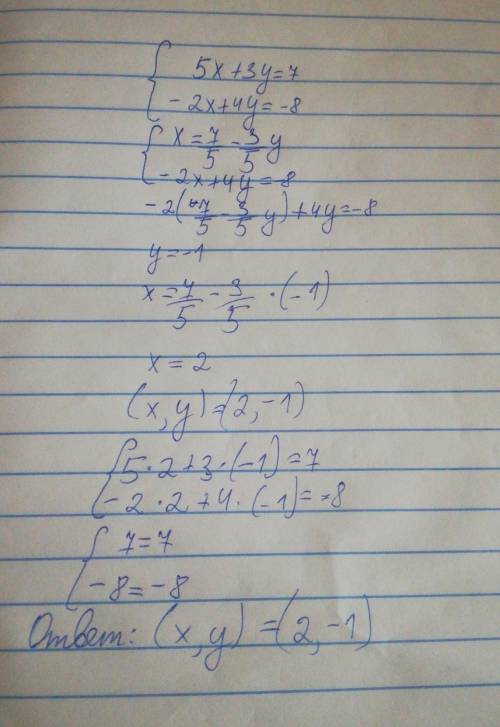 5x+3y=7
-2x+4y=-8
x=7/5-3/5y
-2x+4y=-8
-2(7/5-3/5y)+4y=-8
y=-1
x=7/5-3/5·(-1)
x=2
(x,y)=(2,-1)
5·2+3·(-1)=7
-2·2+4·(-1)=-8
7=7
-8=-8
Ответ: (x,y)=(2,-1)